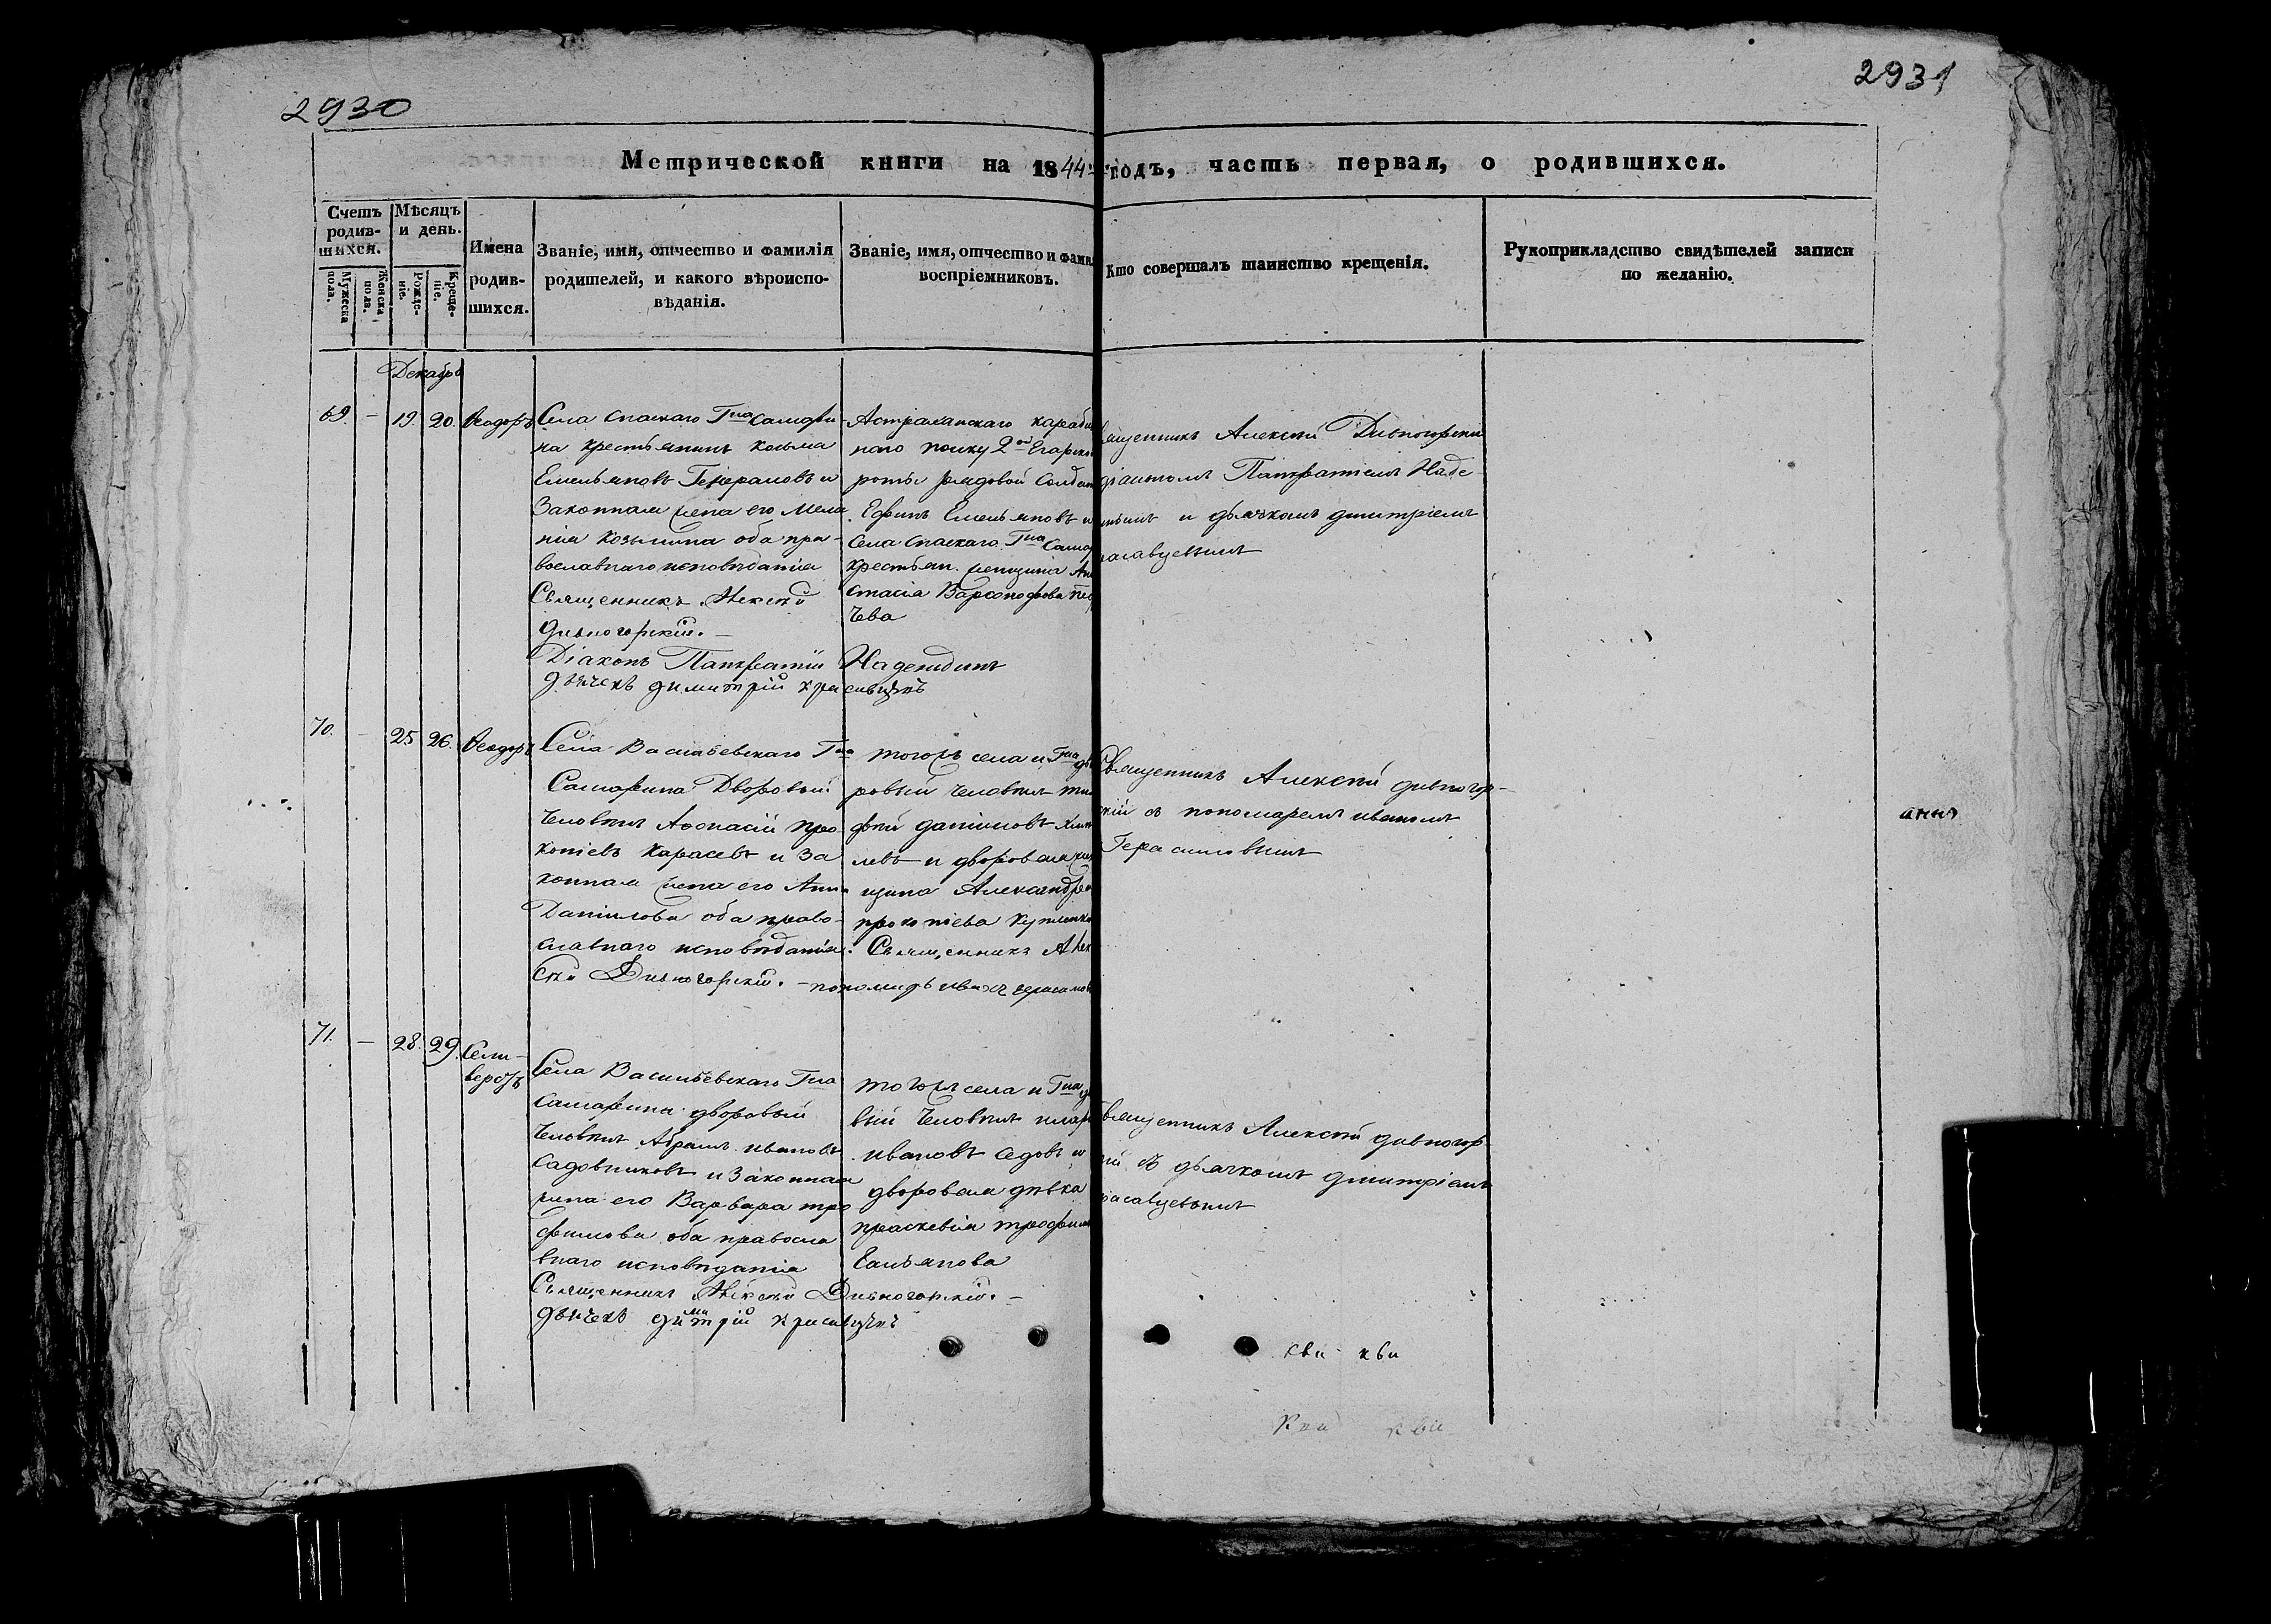 2930
2931
Метрической книги на 1844 годъ, часть первая, о родившихся.
Счетъ родив-шихся.
Мужеска пола.
Женска пола.
Мѣсяцъ и день.
Рожде-ніе.
Креще-ніе.
Имена родив-шихся.
Званіе, имя, отчество и фамилія
родителей, и какого вѣроиспо-
вѣданія.
Званіе, имя, отчество и фами
воспріемниковъ.
Кто совершалъ таинство крещенія.
Рукоприкладство свидѣтелей записи
по желанію.
Декабрь
69. - 19. 20. Ѳеодоръ
Села Спаскаго Гна Самари-
на крестьянинъ Козьма
Емельяновъ Генераловъ и
Законная жена его Мела
нія Козьмина оба пра-
вославнаго исповѣданія
Священникъ Алексѣй
Дивногорскій. -
Діаконъ Панкратій Надеждинъ
дьячекъ Димитрій Красавцевъ
Астраханскаго караби
наго полку 2ой Егарско
роты рядовой Солдат
Ефимъ Емельяновъ и
Села Спаскаго Гна Самар
крестьян. женщина Ана
стасія Варсонофьева
чева
священникъ Алексѣй Дивногорскій
діакономъ Панкратіемъ Наде
нымъ и дьячкомъ Димитріемъ
расавцевымъ
70. - 25 26. Ѳеодоръ
Села Васильевскаго Гна
Самарина Дворовый
Человѣкъ Аѳонасій Про-
копіевъ Карасевъ и За
конная жена его Анна
Даніилова оба право-
славнаго исповѣданія.
Священникъ Алек
сѣй Дивногорскій. - пономарь Иванъ Герасимовъ
тогожъ села и Гна дво
ровый человѣкъ Тим
фѣй Даніиловъ
левъ и дворовая жен
щина Александра
Прокопіева
Священникъ Алексѣй Дивногор-
скій съ пономаремъ Иваномъ
Герасимовымъ
анна
71. - 28. 29. Сели-
верстъ
Села Васильевскаго Гна
Самарина дворовый
Человѣкъ Абрамъ Ивановъ
Садовниковъ и Законная
жена его Варвара Тро
фимова оба правосла
внаго исповѣданія
Священникъ Алексѣй Дивногорскій. -
дьячекъ Димитрій Красавцевъ
тогожъ села и Гна д
вый Человѣкъ Илар
Ивановъ Седовъ и
дворовая дѣвка
Праскевія Трофим
Емельянова
Священникъ Алексѣй Дивногор-
ій съ дьячкомъ Димитріемъ
расавцевымъ
кви кви